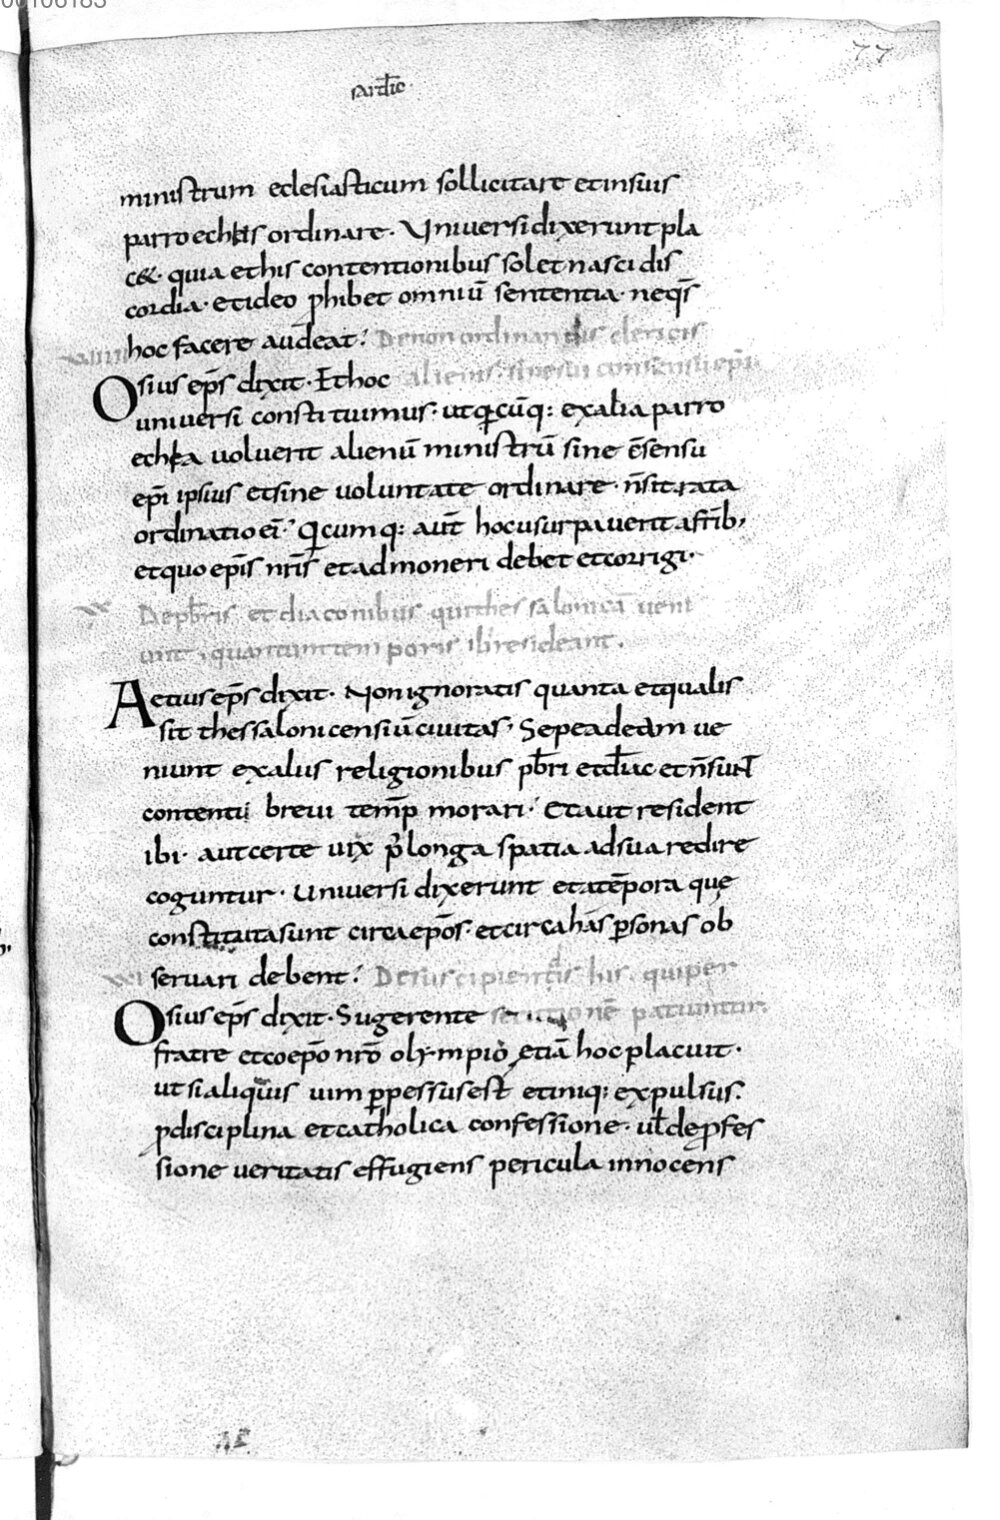 77
sardic̄
ministrum eclesiasticum sollicitare et in suis
parroechiis ordinare. Universi dixerunt pla
c&. quia et his contentionibus solet nasci dis
cordia. et ideo ꝓhibet omniū sententia. neq̄s
hoc facere audeat; De non ordinandis clericis
Osius ep̄s dixit. Et hoc alienis sine consensu ep̄i
universi constituimus. ut qicūq: ex alia parro
echia voluerit alienū ministrū sine c̄sensu
ep̄i ipsius et sine voluntate ordinare. n̄ sit rata
ordinatio ei; Qicumq: aut̄ hoc usurpaverit a fr̄ib,
et quoep̄is nr̄is et admoneri debet et corrigi.
VII
De pb̄ris et diaconibus qui thessalonicā veni
unt. quantum temporis ibi resideant.
Aetius ep̄s dixit. Non ignoratis quanta et qualis
sit thessalonicensiū civitas. Sepe ad eam ve
niunt ex aliis religionibus pb̄ri et diac̄ et n̄ sunt
contenti brevi temp̄ morari. Et aut resident
ibi. aut certe vix p̄ longa spatia ad sua redire
coguntur. Universi dixerunt et a tēpora quę
constituta sunt circa ep̄os. et circa has ꝑsonas ob
servari debent; De suscipientis his. qui per
Osius ep̄s dixit. Sugerente secutionē patiuntur.
fratre et coep̄o nr̄o olympio, etiā hoc placuit.
ut si aliquis vim ꝑpessus est et iniq: expulsus.
ꝓ disciplina et catholica confessione. vel de ꝓfes
sione veritatis effugiens pericula innocens